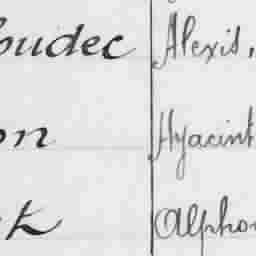 oudec Alexis,
on Hyacint
et Alpho